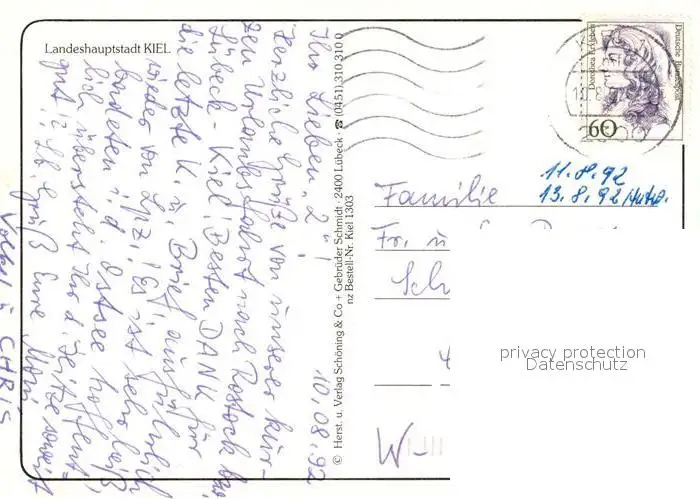 Landeshauptstadt KIEL
Ihr Lieben 2 !
10.08.92
Herzliche Grüße von unserer kur-
zen Urlaubsfahrt nach Rostock
Lübeck - Kiel. Besten DANK für
die letzte K. u. Brief ausführlich
wieder von Lpz. ! Es ist sehr heiß,
badeten i. d. Ostsee
lich übersteht Ihr d. Hitze soweit
gut ! Lb. Grüß Eure Moni
Volker & CHRIS
© Herst. u. Verlag Schöning & Co + Gebrüder Schmidt · 2400 Lübeck · ☎ (0451) 310 310 0
nz Bestell-Nr. Kiel 1303
Deutsche Bundespost
60
11.8.92
13.8.92
Familie
Fr. u
Sch
W-
privacy protection
Datenschutz